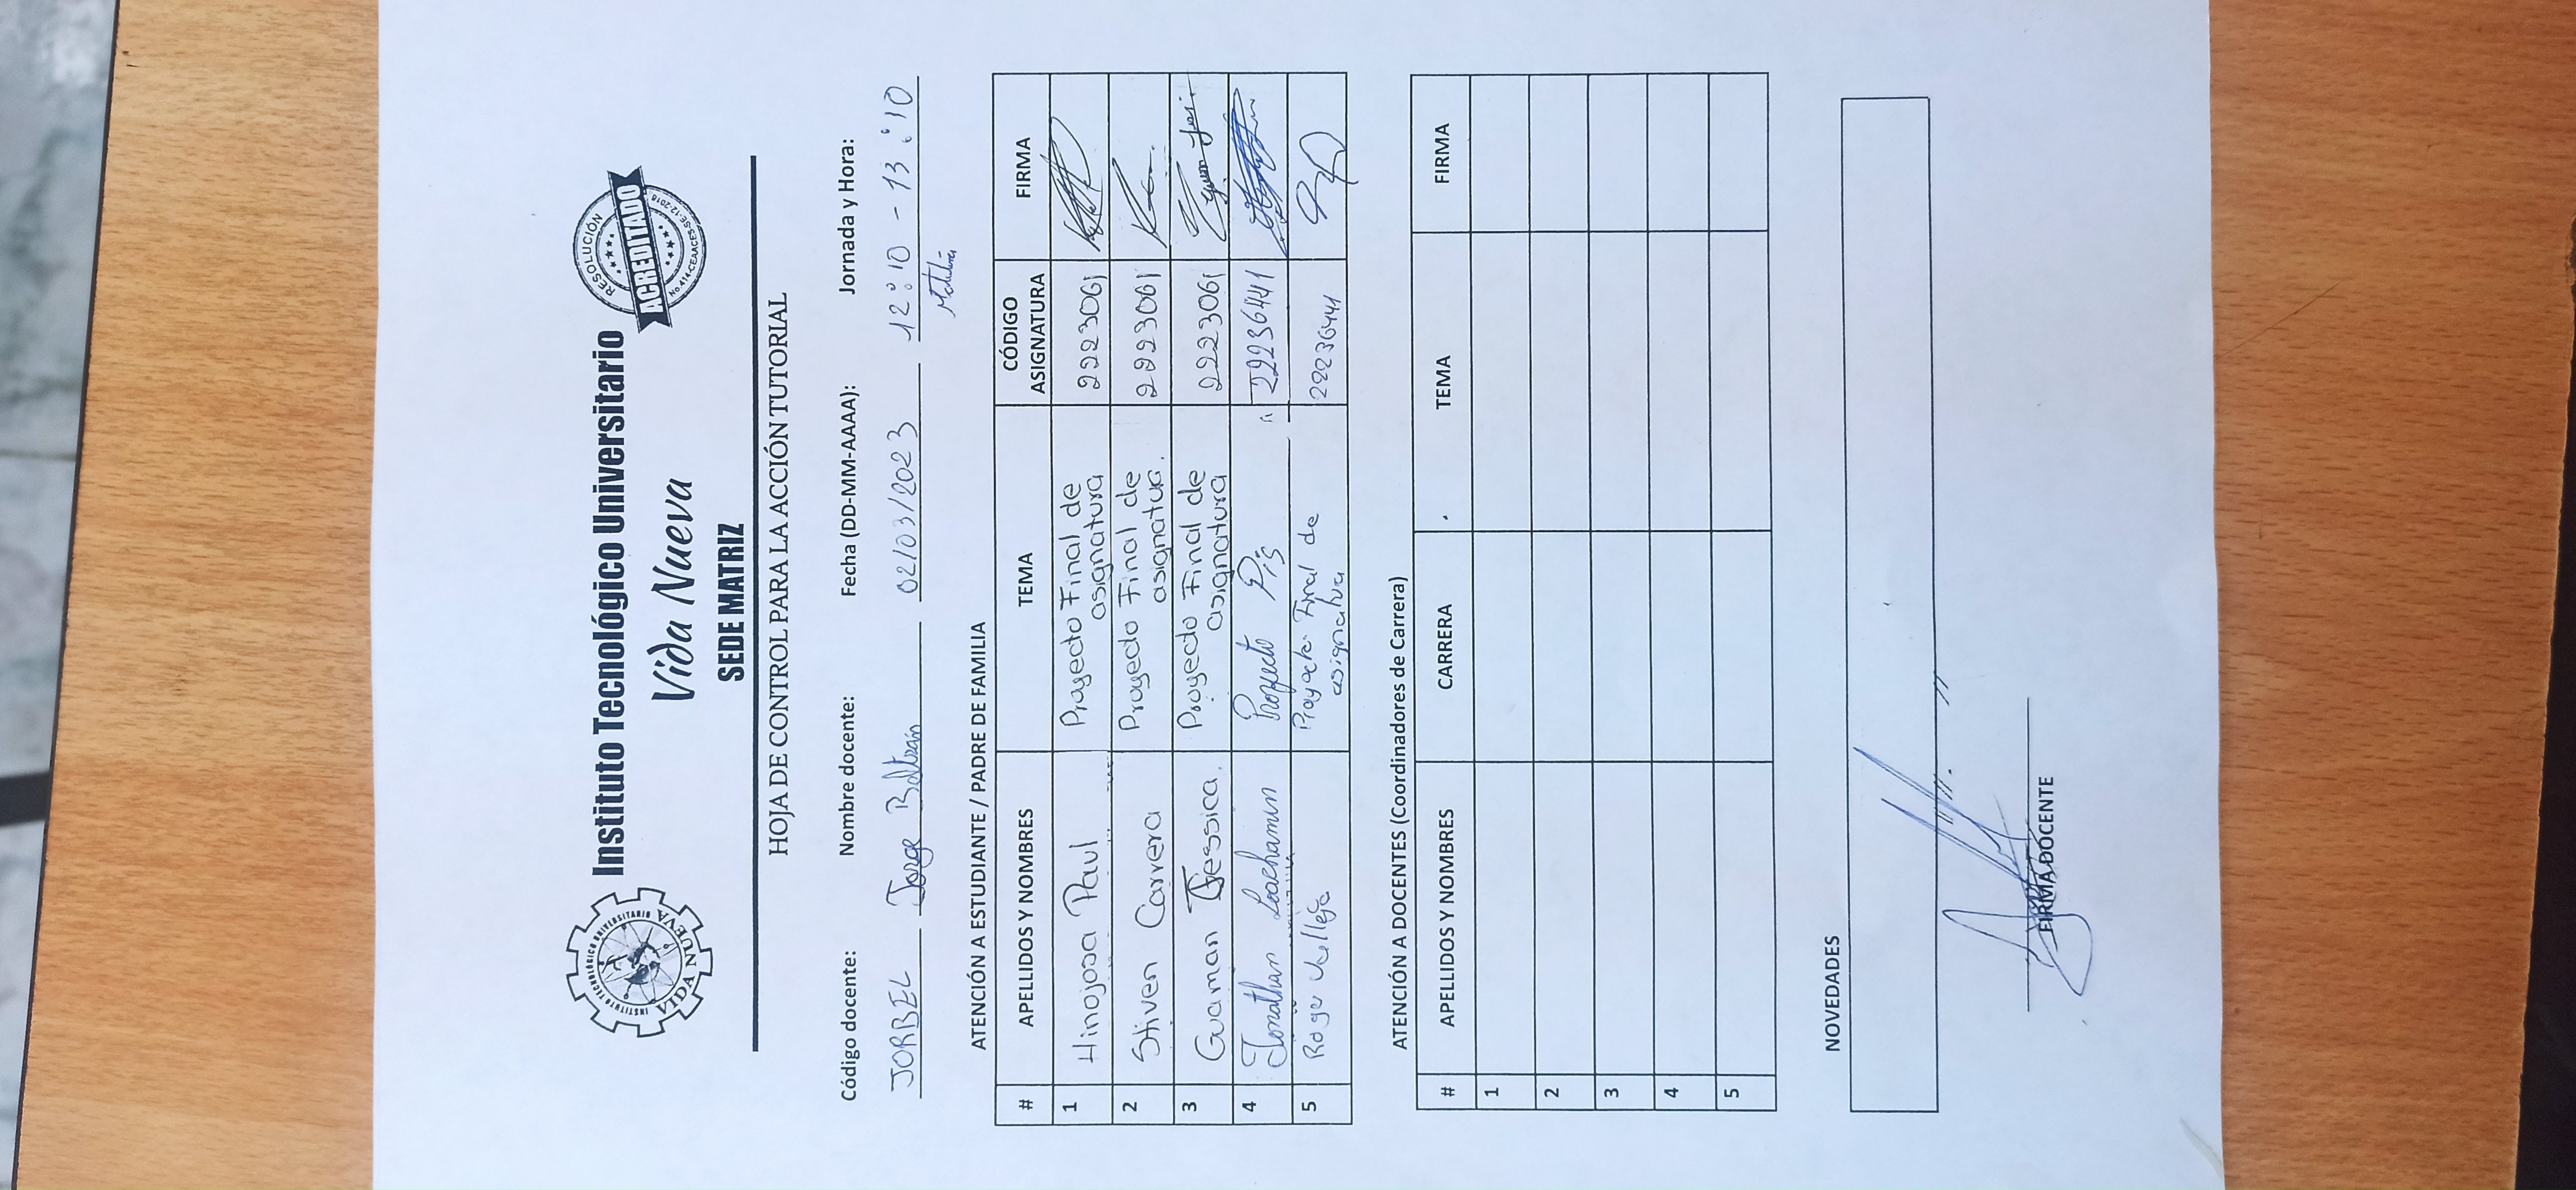 INSTITUTO TECNOLÓGICO UNIVERSITARIO
VIDA NUEVA
Instituto Tecnológico Universitario
Vida Nueva
SEDE MATRIZ
RESOLUCIÓN
ACREDITADO
No.414-CEAACES-SE-12-2016
HOJA DE CONTROL PARA LA ACCIÓN TUTORIAL
Código docente: Nombre docente: Fecha (DD-MM-AAAA): Jornada y Hora:
JORBEL Jorge Beltran 02/03/2023 12:10 - 13:10
ATENCIÓN A ESTUDIANTE / PADRE DE FAMILIA
# APELLIDOS Y NOMBRES TEMA CÓDIGO ASIGNATURA FIRMA
1 Hinojosa Paul Proyecto Final de asignatura 2223061
2 Stiven Carrera Proyecto Final de asignatur. 2223061
3 Guaman Jessica. Proyecto Final de asignatura 2223061
4 Jonathan Loachamin Proyecto Pis 22236441
5 Roger Vallejo Proyecto Final de asignatura 22236441
ATENCIÓN A DOCENTES (Coordinadores de Carrera)
# APELLIDOS Y NOMBRES CARRERA TEMA FIRMA
1
2
3
4
5
NOVEDADES
FIRMA DOCENTE